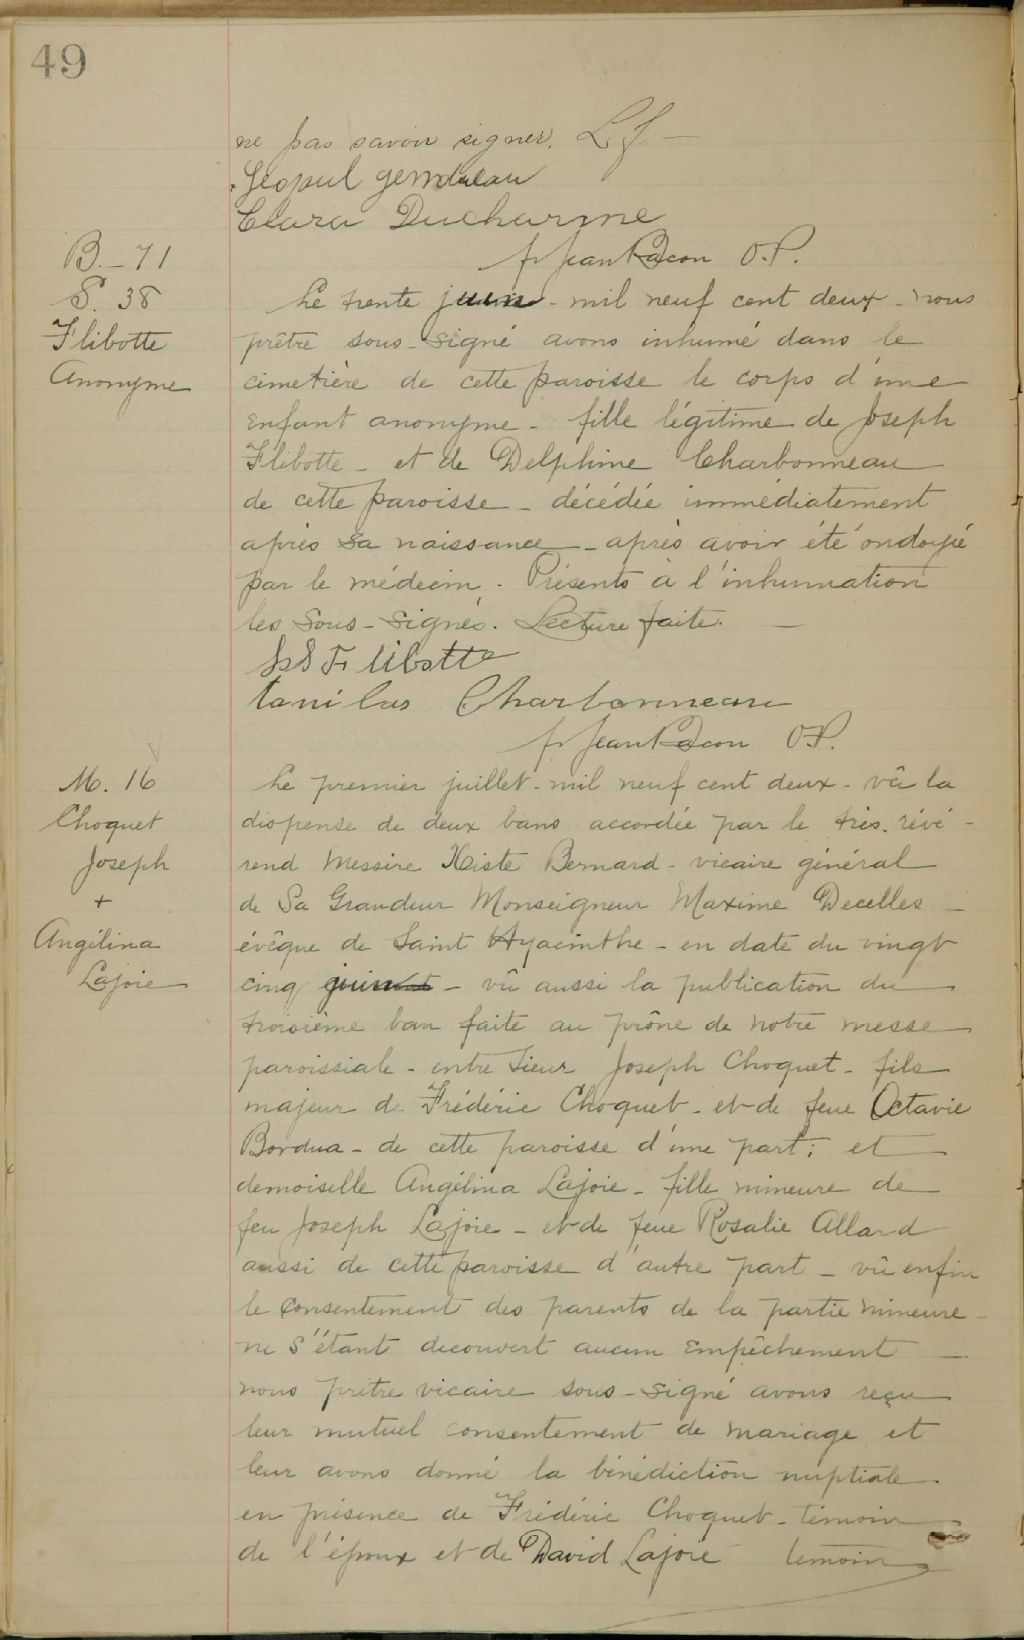 49
ne pas savoir signer. L. f. —
Clara Ducharme
fr Jean Bacon O.P.
B. – 71
S. 38
Flibotte
Anonyme
Le trente juin - mil neuf cent deux - nous
prêtre sous-signé avons inhumé dans le
cimetière de cette paroisse le corps d'une
enfant anonyme - fille légitime de Joseph
Flibotte - et de Delphine Charbonneau
de cette paroisse - décédée immédiatement
après sa naissance - après avoir été ondoyé
par le médecin. Présents à l'inhumation
les sous-signés. Lecture faite. —
Flibotte
Charbonneau
fr Jean Bacon O.P.
M. 16
Choquet
Joseph
+
Angélina
Lajoie
Le premier juillet - mil neuf cent deux - vû la
dispense de deux bans accordée par le très révé-
rend Messire Xiste Bernard - vicaire général
de Sa Grandeur Monseigneur Maxime Decelles —
évêque de Saint Hyacinthe - en date du vingt
cinq juin - vû aussi la publication du
troisième ban faite au prône de notre messe
paroissiale - entre sieur Joseph Choquet - fils
majeur de Frédéric Choquet - et de feue Octavie
Bordua - de cette paroisse d'une part; et
demoiselle Angélina Lajoie - fille mineure de
feu Joseph Lajoie - et de feue Rosalie Allard
aussi de cette paroisse d'autre part - vû enfin
le consentement des parents de la partie mineure -
ne s'étant decouvert aucun empêchement —
nous prêtre vicaire sous-signé avons reçu
leur mutuel consentement de mariage et
leur avons donné la bénédiction nuptiale -
en présence de Frédéric Choquet - témoin
de l'époux et de David Lajoie temoin